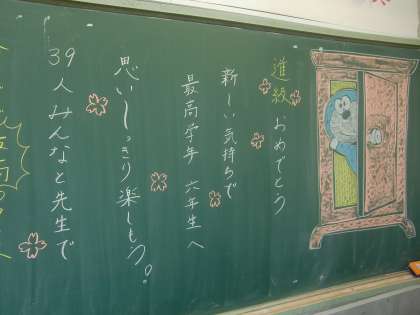 進級おめでとう
新しい気持ちで
最高学年 六年生へ
思いっきり楽しもう。
39人みんなと先生で